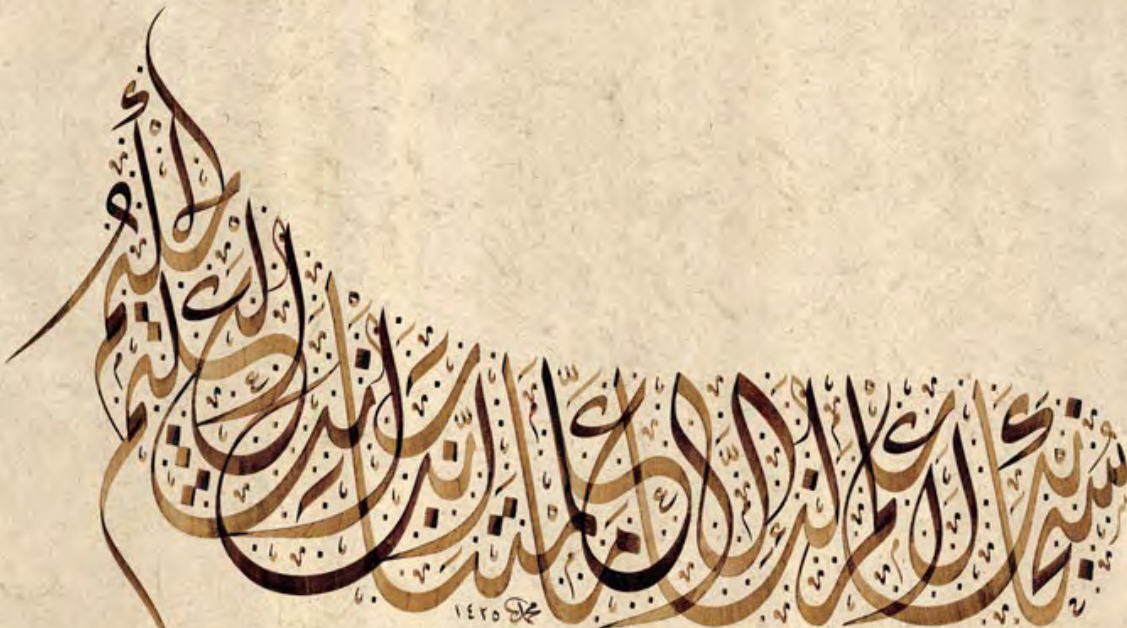 سبحانك لا علم لنا إلا ما علمتنا إنك أنت العليم الحكيم
١٤٢٥